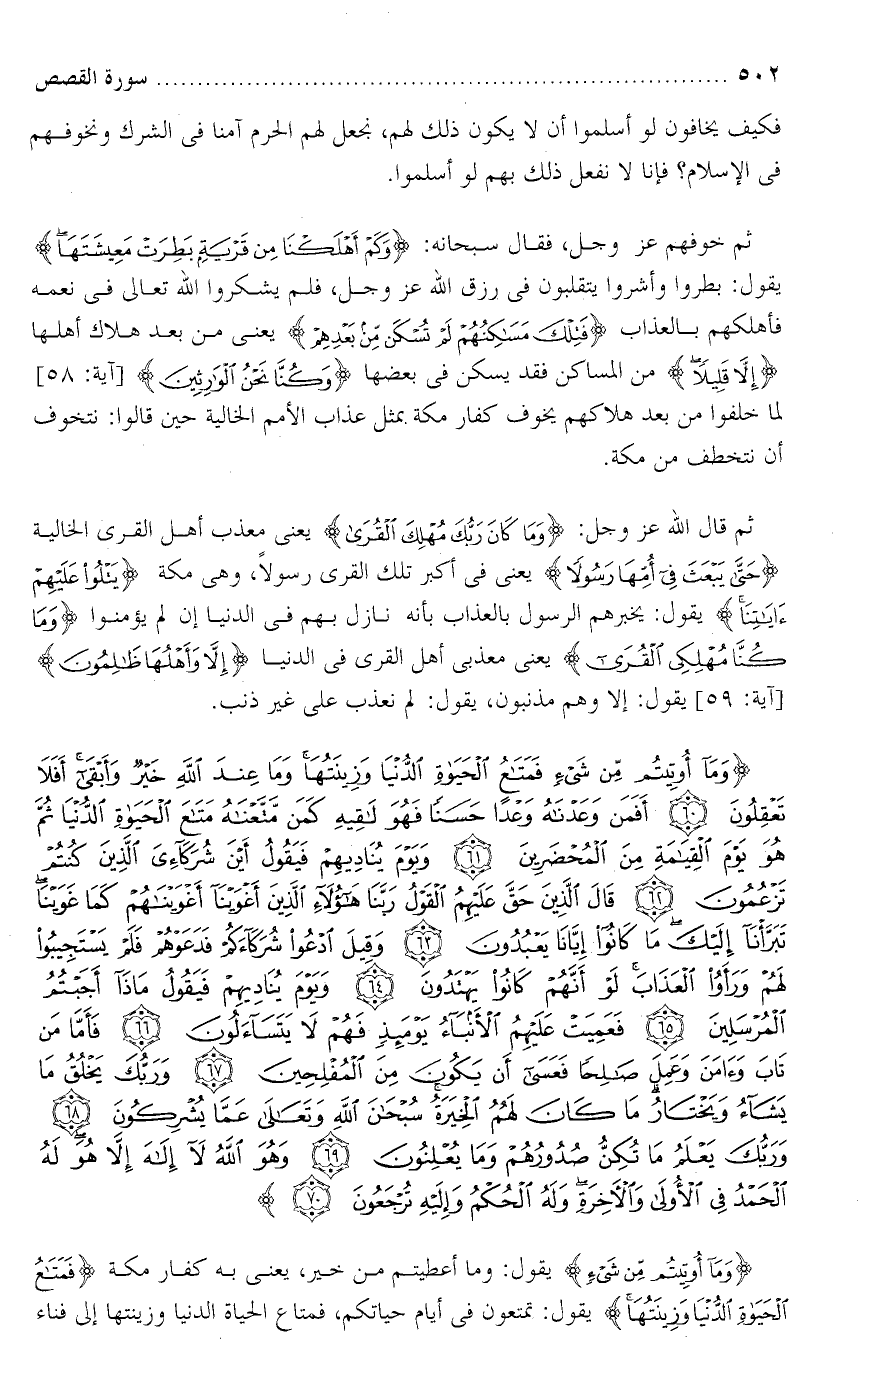 ٥٠٢ ........................................................................ سورة القصص
فكيف يخافون لو أسلموا أن لا يكون ذلك لهم، نجعل لهم الحرم آمنا فى الشرك ونخوفهم
فى الإسلام؟ فإنا لا نفعل ذلك بهم لو أسلموا.
ثم خوفهم عز وجل، فقال سبحانه: ﴿وَكَمْ أَهْلَكْنَا مِن قَرْيَةٍ بَطِرَتْ مَعِيشَتَهَا ۖ﴾
يقول: بطروا وأشروا يتقلبون فى رزق الله عز وجل، فلم يشكروا الله تعالى فى نعمه
فأهلكهم بالعذاب ﴿فَتِلْكَ مَسَاكِنُهُمْ لَمْ تُسْكَن مِّنۢ بَعْدِهِمْ﴾ يعنى من بعد هلاك أهلها
﴿إِلَّا قَلِيلًا ۖ﴾ من المساكن فقد يسكن فى بعضها ﴿وَكُنَّا نَحْنُ الْوَارِثِينَ﴾ [آية: ٥٨]
لما خلفوا من بعد هلاكهم يخوف كفار مكة بمثل عذاب الأمم الخالية حين قالوا: نتخوف
أن نتخطف من مكة.
ثم قال الله عز وجل: ﴿وَمَا كَانَ رَبُّكَ مُهْلِكَ الْقُرَىٰ﴾ يعنى معذب أهل القرى الخالية
﴿حَتَّىٰ يَبْعَثَ فِىٓ أُمِّهَا رَسُولًا﴾ يعنى فى أكبر تلك القرى رسولاً، وهى مكة ﴿يَتْلُوا۟ عَلَيْهِمْ
ءَايَٰتِنَا ۚ﴾ يقول: يخبرهم الرسول بالعذاب بأنه نازل بهم فى الدنيا إن لم يؤمنوا ﴿وَمَا
كُنَّا مُهْلِكِى الْقُرَىٰٓ﴾ يعنى معذبى أهل القرى فى الدنيا ﴿إِلَّا وَأَهْلُهَا ظَٰلِمُونَ﴾
[آية: ٥٩] يقول: إلا وهم مذنبون، يقول: لم نعذب على غير ذنب.
﴿وَمَآ أُوتِيتُم مِّن شَىْءٍ فَمَتَٰعُ الْحَيَوٰةِ الدُّنْيَا وَزِينَتُهَا ۚ وَمَا عِندَ اللَّهِ خَيْرٌ وَأَبْقَىٰٓ ۚ أَفَلَا
تَعْقِلُونَ ۝٦٠ أَفَمَن وَعَدْنَٰهُ وَعْدًا حَسَنًا فَهُوَ لَٰقِيهِ كَمَن مَّتَّعْنَٰهُ مَتَٰعَ الْحَيَوٰةِ الدُّنْيَا ثُمَّ
هُوَ يَوْمَ الْقِيَٰمَةِ مِنَ الْمُحْضَرِينَ ۝٦١ وَيَوْمَ يُنَادِيهِمْ فَيَقُولُ أَيْنَ شُرَكَآءِىَ الَّذِينَ كُنتُمْ
تَزْعُمُونَ ۝٦٢ قَالَ الَّذِينَ حَقَّ عَلَيْهِمُ الْقَوْلُ رَبَّنَا هَٰٓؤُلَآءِ الَّذِينَ أَغْوَيْنَآ أَغْوَيْنَٰهُمْ كَمَا غَوَيْنَا ۖ
تَبَرَّأْنَآ إِلَيْكَ ۖ مَا كَانُوٓا۟ إِيَّانَا يَعْبُدُونَ ۝٦٣ وَقِيلَ ادْعُوا۟ شُرَكَآءَكُمْ فَدَعَوْهُمْ فَلَمْ يَسْتَجِيبُوا۟
لَهُمْ وَرَأَوُا۟ الْعَذَابَ ۚ لَوْ أَنَّهُمْ كَانُوا۟ يَهْتَدُونَ ۝٦٤ وَيَوْمَ يُنَادِيهِمْ فَيَقُولُ مَاذَآ أَجَبْتُمُ
الْمُرْسَلِينَ ۝٦٥ فَعَمِيَتْ عَلَيْهِمُ الْأَنۢبَآءُ يَوْمَئِذٍ فَهُمْ لَا يَتَسَآءَلُونَ ۝٦٦ فَأَمَّا مَن
تَابَ وَءَامَنَ وَعَمِلَ صَٰلِحًا فَعَسَىٰٓ أَن يَكُونَ مِنَ الْمُفْلِحِينَ ۝٦٧ وَرَبُّكَ يَخْلُقُ مَا
يَشَآءُ وَيَخْتَارُ ۗ مَا كَانَ لَهُمُ الْخِيَرَةُ ۚ سُبْحَٰنَ اللَّهِ وَتَعَٰلَىٰ عَمَّا يُشْرِكُونَ ۝٦٨
وَرَبُّكَ يَعْلَمُ مَا تُكِنُّ صُدُورُهُمْ وَمَا يُعْلِنُونَ ۝٦٩ وَهُوَ اللَّهُ لَآ إِلَٰهَ إِلَّا هُوَ ۖ لَهُ
الْحَمْدُ فِى الْأُولَىٰ وَالْءَاخِرَةِ ۖ وَلَهُ الْحُكْمُ وَإِلَيْهِ تُرْجَعُونَ ۝٧٠ ﴾
﴿وَمَآ أُوتِيتُم مِّن شَىْءٍ﴾ يقول: وما أعطيتم من خير، يعنى به كفار مكة ﴿فَمَتَٰعُ
الْحَيَوٰةِ الدُّنْيَا وَزِينَتُهَا ۚ﴾ يقول: تمتعون فى أيام حياتكم، فمتاع الحياة الدنيا وزينتها إلى فناء